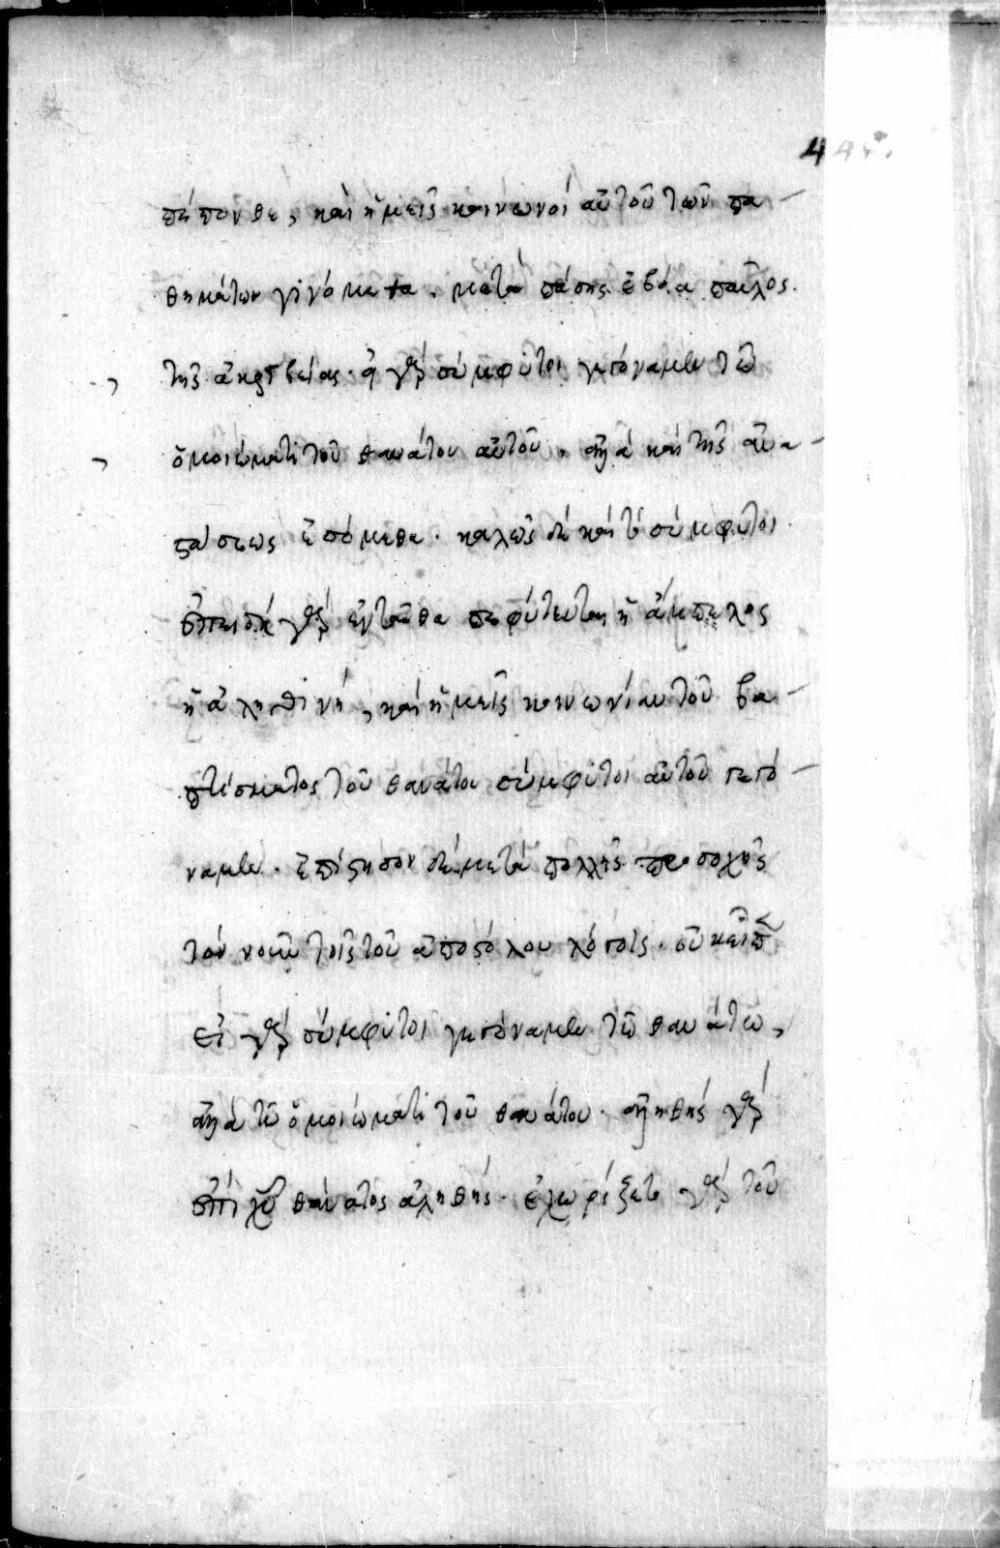 πέπονθε, καὶ ἡμεῖς κοινωνοὶ αὐτοῦ τῶν πα-
θημάτων γινόμεθα. μετὰ πάσης ἐβόα παῦλος
τῆς ἀκριβείας. εἰ γὰρ σύμφυτοι γεγόναμεν τῶ
ὁμοιώματι τοῦ θανάτου αὐτοῦ, ἀλλὰ καὶ τῆς ἀνα-
στάσεως ἐσόμεθα. καλῶς δὲ καὶ τὸ σύμφυτοι.
ἐπειδὴ γὰρ ἐνταῦθα πεφύτευται ἡ ἄμπελος
ἡ ἀληθινή, καὶ ἡμεῖς κοινωνία τοῦ βα-
πτίσματος τοῦ θανάτου σύμφυτοι αὐτοῦ γεγό-
ναμεν. ἐπίστησον δὲ μετὰ πολλῆς προσοχῆς
τὸν νοῦν τοῖς τοῦ ἀποστόλου λόγοις. οὐκ εἶπ
εἰ γὰρ σύμφυτοι γεγόναμεν τῶ θανάτω,
ἀλλὰ τῶ ὁμοιώματι τοῦ θανάτου. ἀληθὴς γὰρ
ἐπὶ χῦ θάνατος ἀληθής. ἐχωρίζετο γὰρ τοῦ